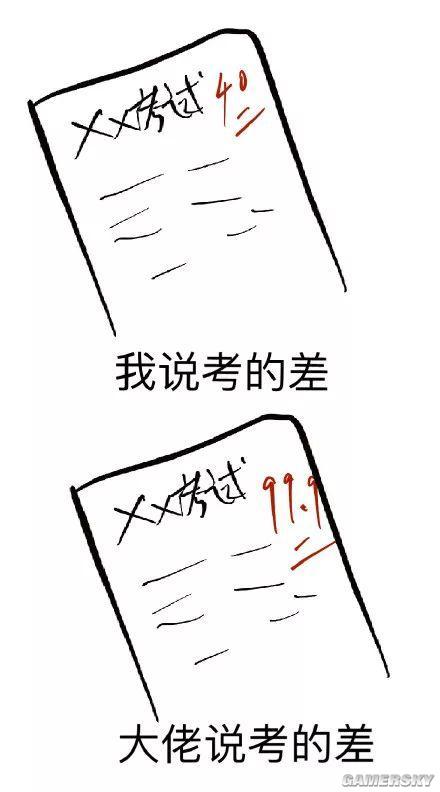 ××考试 40
我说考的差
××考试 99.9
大佬说考的差
GAMERSKY